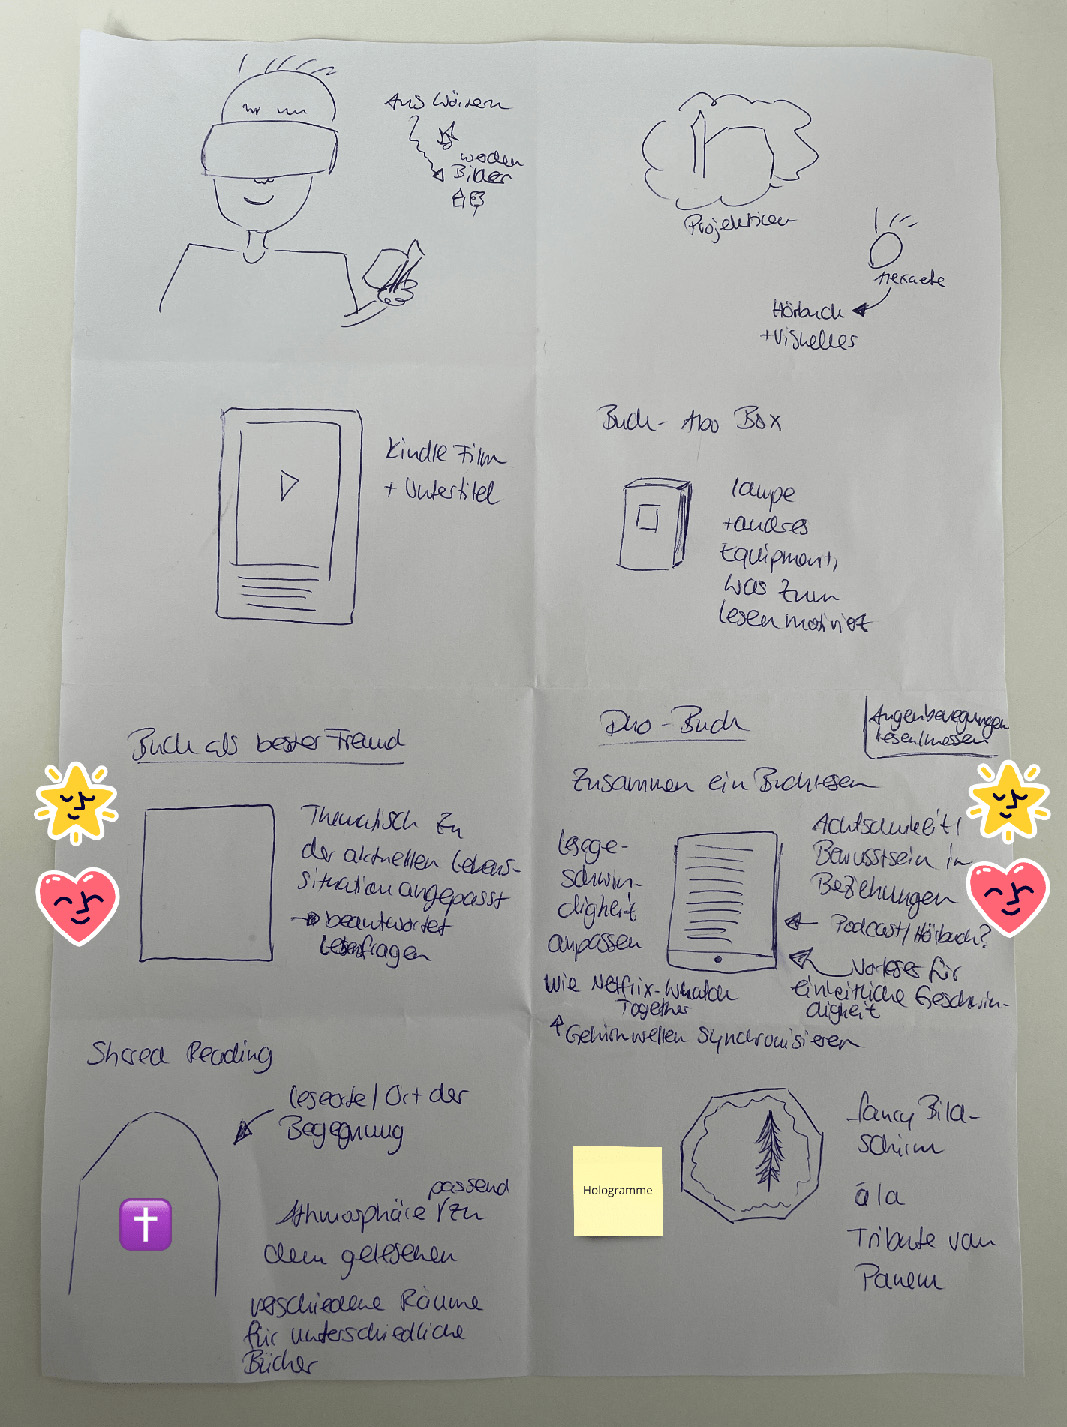 Aus Wörtern
werden
Bilder
Projektion
Hörbuch
+ Visuelles
Kindle Film
+ Untertitel
Buch - Abo Box
Lampe
+ andres
Equipment,
was zum
lesen motiviert
Buch als bester Freund
Thematisch zu
der aktuellen Lebens-
situation angepasst
beantwortet
Leserfragen
Duo - Buch
Augenbewegungen
lesen/messen
Zusammen ein Buch lesen
Lesege-
schwin-
digkeit
anpassen
Wie Netflix-Whatch
Together
Gehirnwellen synchronisieren
Achtsamkeit/
Bewusstsein in
Beziehungen
Podcast/Hörbuch?
Vorleser für
einheitliche Geschwin-
digkeit
Shared Reading
Leseorte/Ort der
Begegnung
passend
Athmosphäre zu
dem gelesenen
verschiedene Räume
für unterschiedliche
Bücher
Hologramme
fancy Bild-
schirm
á la
Tribute von
Panem